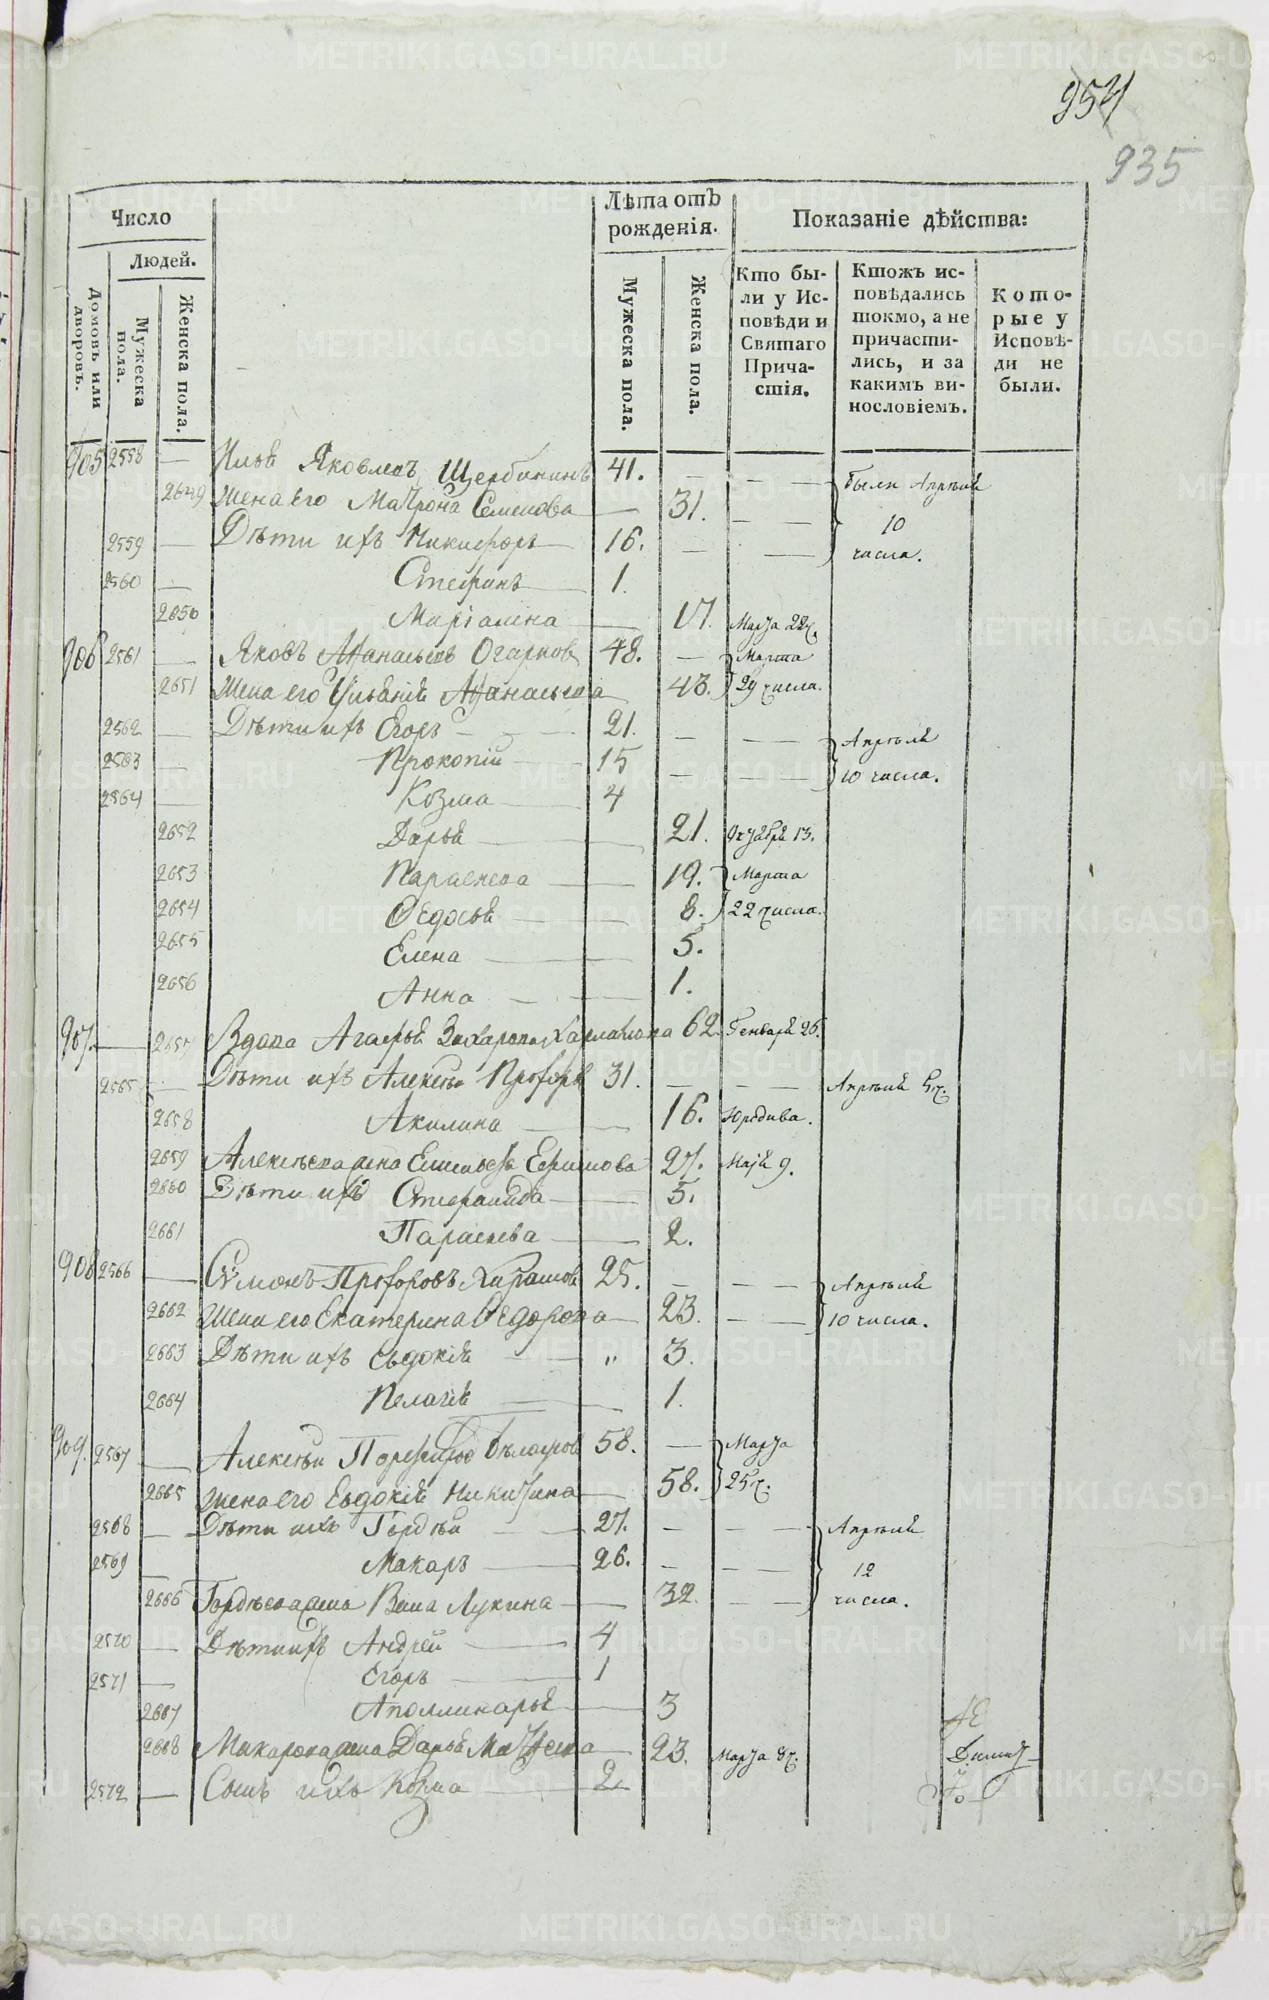 954
935
Число
Людей.
Домовъ или дворовъ.
Мужеска пола.
Женска пола.
Лѣта отъ рожденія.
Мужеска пола.
Женска пола.
Показаніе дѣйства:
Кто бы-
ли у Ис-
повѣди и
Святаго
Прича-
стія.
Ктожъ ис-
повѣдались
токмо, а не
причасти-
лись, и за
какимъ ви-
нословіемъ.
Кото-
рые у
Исповѣ-
ди не
были.
905 2558 — Илья Яковлевъ Щербининъ 41. — были Апрѣля
2649 Жена его Матрона Семенова — 31. — 10
2559 — Дѣти ихъ Никифоръ 16. — числа.
2560 — Стефанъ 1.
2650 — 17. Марта 22 ч.
906 2561 — Яковъ Афанасьевъ 48. — Марта
2651 Жена его Афанасьева 43. 29 числа.
2562 — Дѣти ихъ Егоръ 21. — Апрѣля
2563 — Прокопій 15 — 10 числа.
2564 — Козма 4
2652 Дарья — 21. Октября 13.
2653 Параскева — 19. Марта
2654 Ѳедосья — 8. 22 числа.
2655 Елена — 5.
2656 Анна — 1.
907. — 2657 Вдова Агафья Захарова 62. Генваря 26.
2565 — Дѣти ихъ Алексѣй Прохоръ 31. — Апрѣля 5 ч.
2658 Акилина — 16. Юродива.
2659 Алексѣева жена Ефимова 27. Маія 9.
2660 Дѣти ихъ Степанида — 5.
2661 Параскева — 2.
908 2566 — Сѵмонъ Прохоровъ 25. — Апрѣля
2662 Жена его Екатерина Ѳедорова — 23. — 10 числа.
2663 Дѣти ихъ Евдокія — „ 3.
2664 Пелагія — 1.
909. 2567 — Алексѣй 58. — Марта
2665 Жена его Евдокія Никитина — 58. 25 ч.
2568 — Дѣти ихъ Гордѣй 27. — Апрѣля
2569 — Макаръ 26. — 12
2666 Гордѣева жена Васса Лукина — 32. — числа.
2570 — Дѣти ихъ Андрей — 4
2571 — Егоръ — 1
2667 Аполлинарья — 3
2668 Макарова жена Дарья — 23. Марта 8 ч.
2572 — Сынъ ихъ Козма — 2.
METRIKI.GASO-URAL.RU